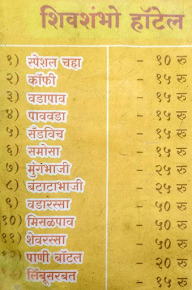 शिवशंभो हॉटेल
१) स्पेशल चहा - १० रु
२) कॉफी - १५ रु
३) वडापाव - १५ रु
४) पाववडा - १५ रु
५) सॅडविच - १५ रु
६) समोसा - १५ रु
७) मुंगभाजी - २५ रु
८) बटाटाभाजी - २५ रु
९) वडारस्सा - ५० रु
१०) मिसळपाव - ५० रु
११) शेवरस्सा - ५० रु
१२) पाणी बॉटल - २० रु
लिंबूसरबत - १५ रु